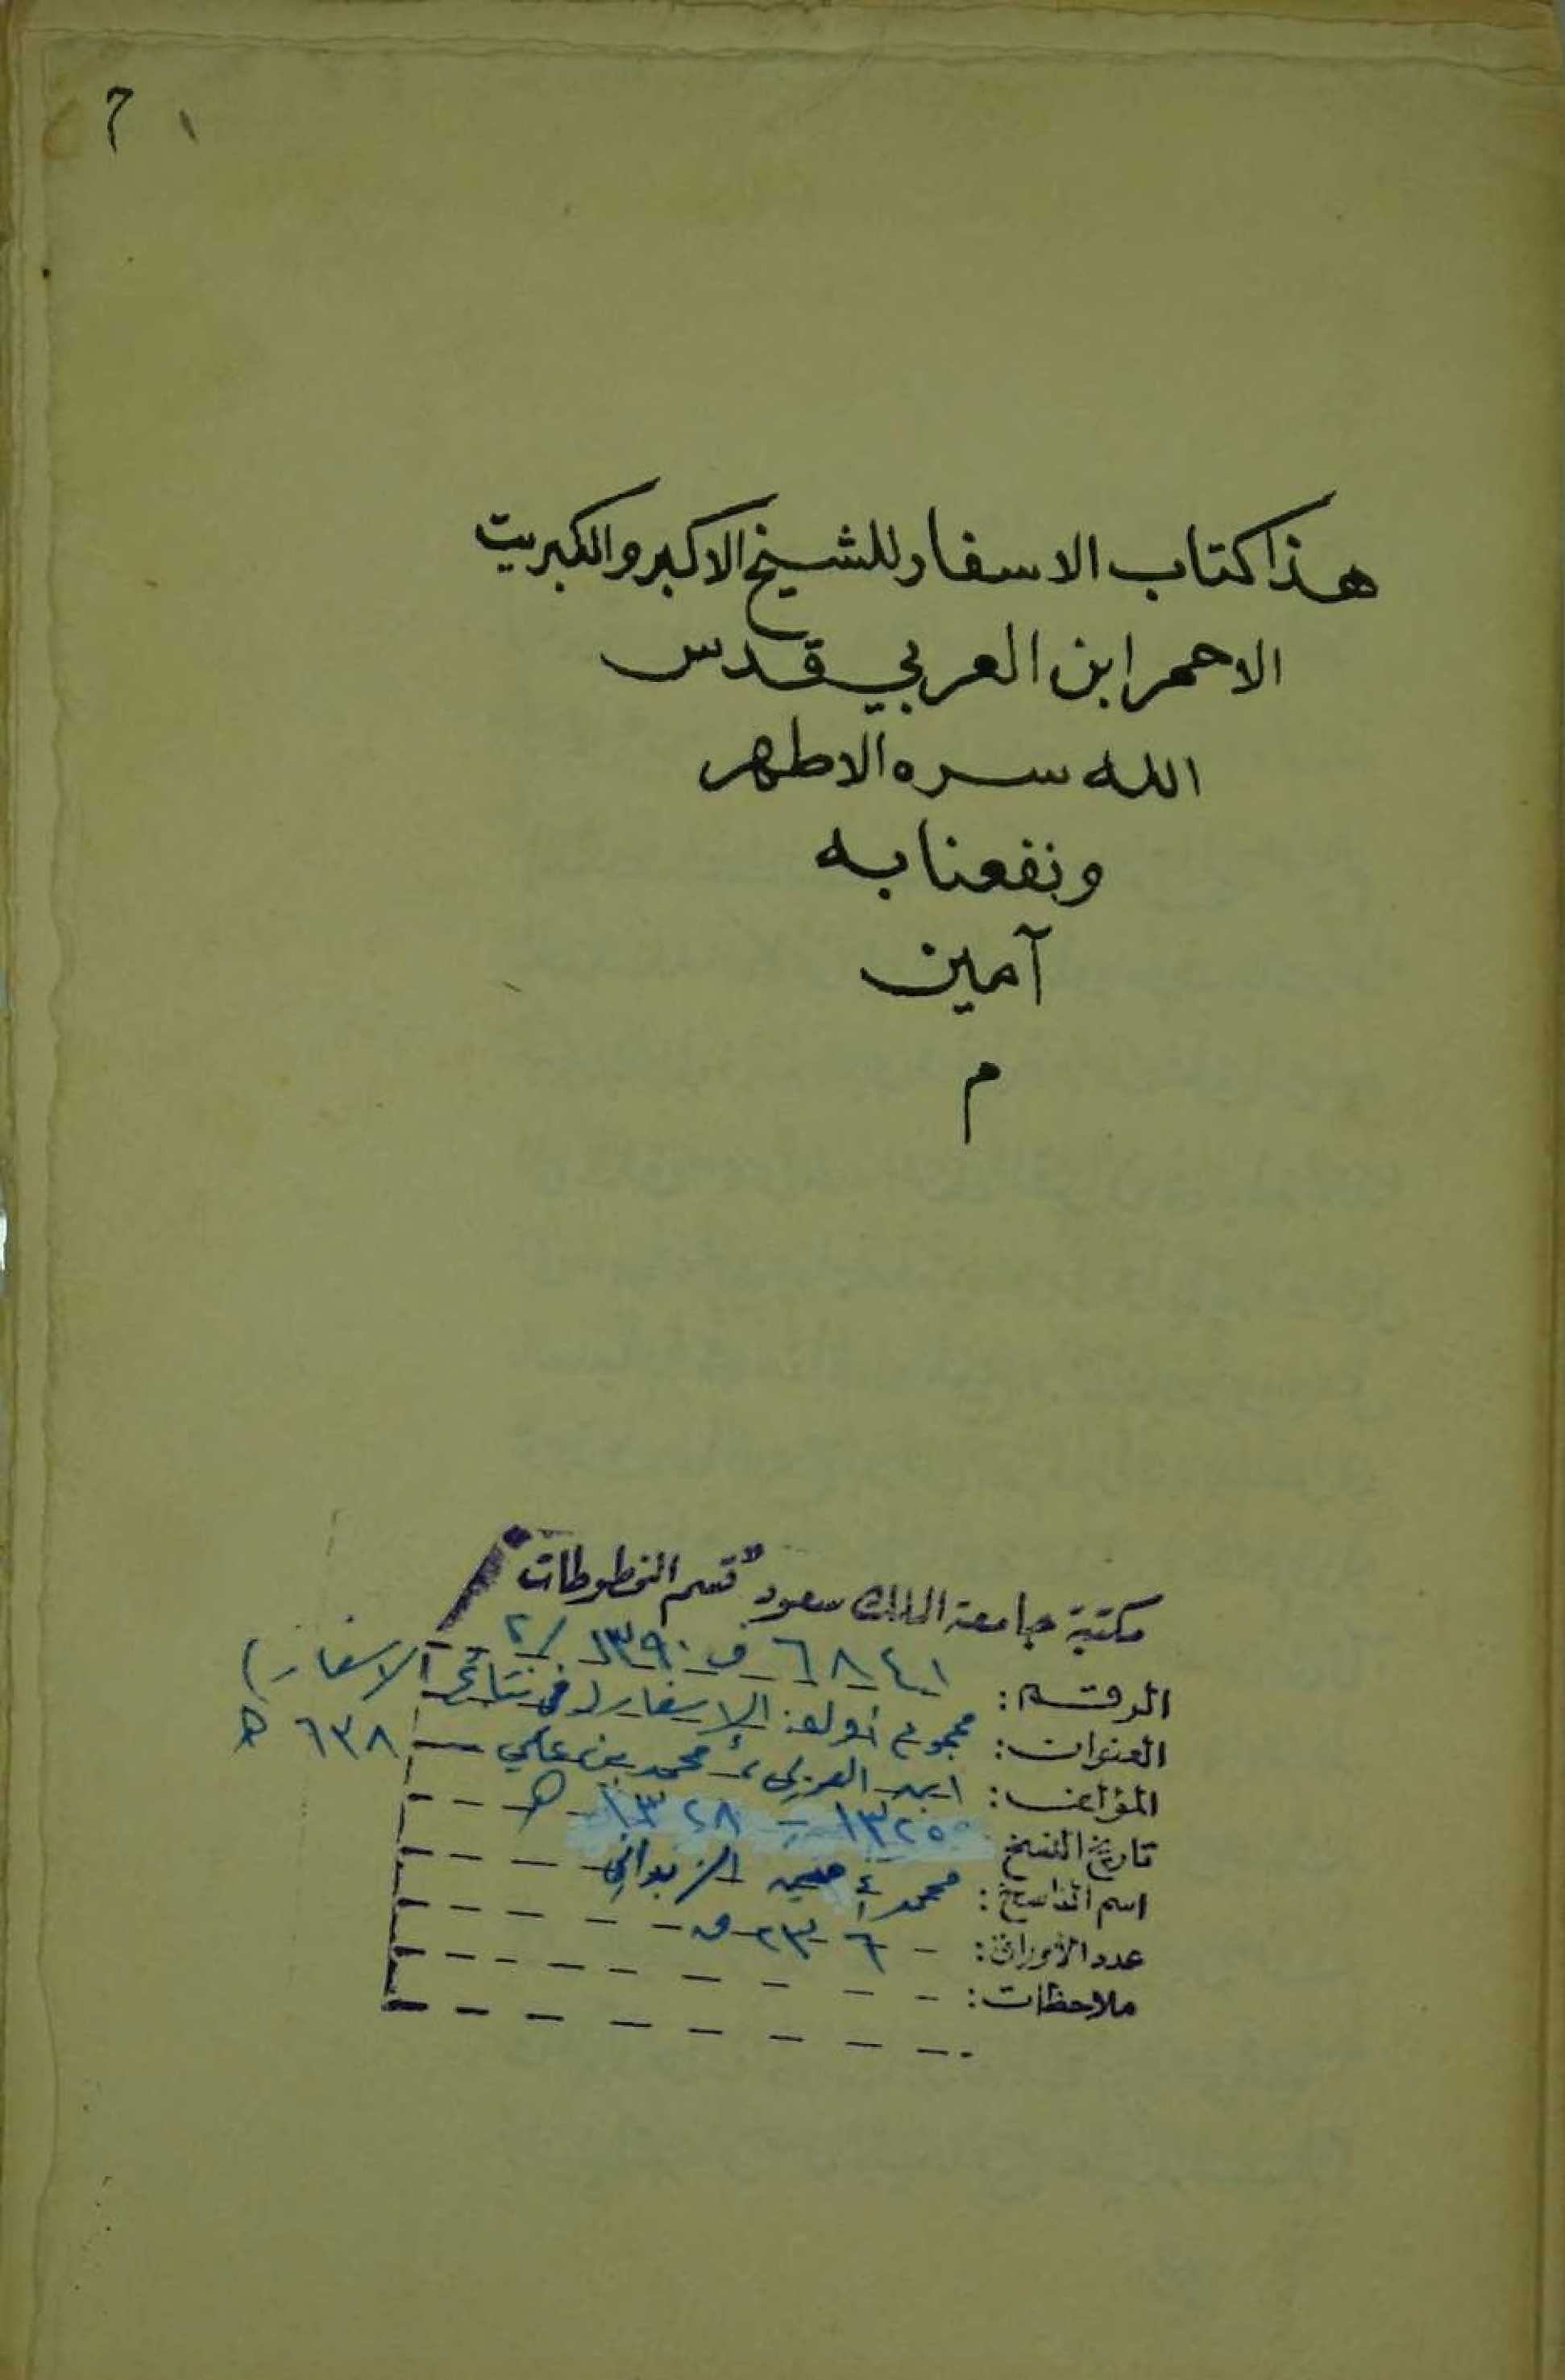 ١
هذا كتاب الاسفار للشيخ الاكبر والكبريت
الاحمر ابن العربي قدس
الله سره الاطهر
ونفعنا به
آمين
م
مكتبة جامعة الملك سعود قسم المخطوطات
الرقم: ٦٨٤١ ف ١٣٩٠/٢
العنوان: مجموع أوله: الإسفار (في نتائج الاسفار)
المؤلف: ابن العربي، محمد بن علي - ٦٣٨ هـ
تاريخ النسخ ١٣٢٥ - ١٣٢٨ هـ
اسم الناسخ: محمد
عدد الأوراق: ٢٣٦ ق
ملاحظات: